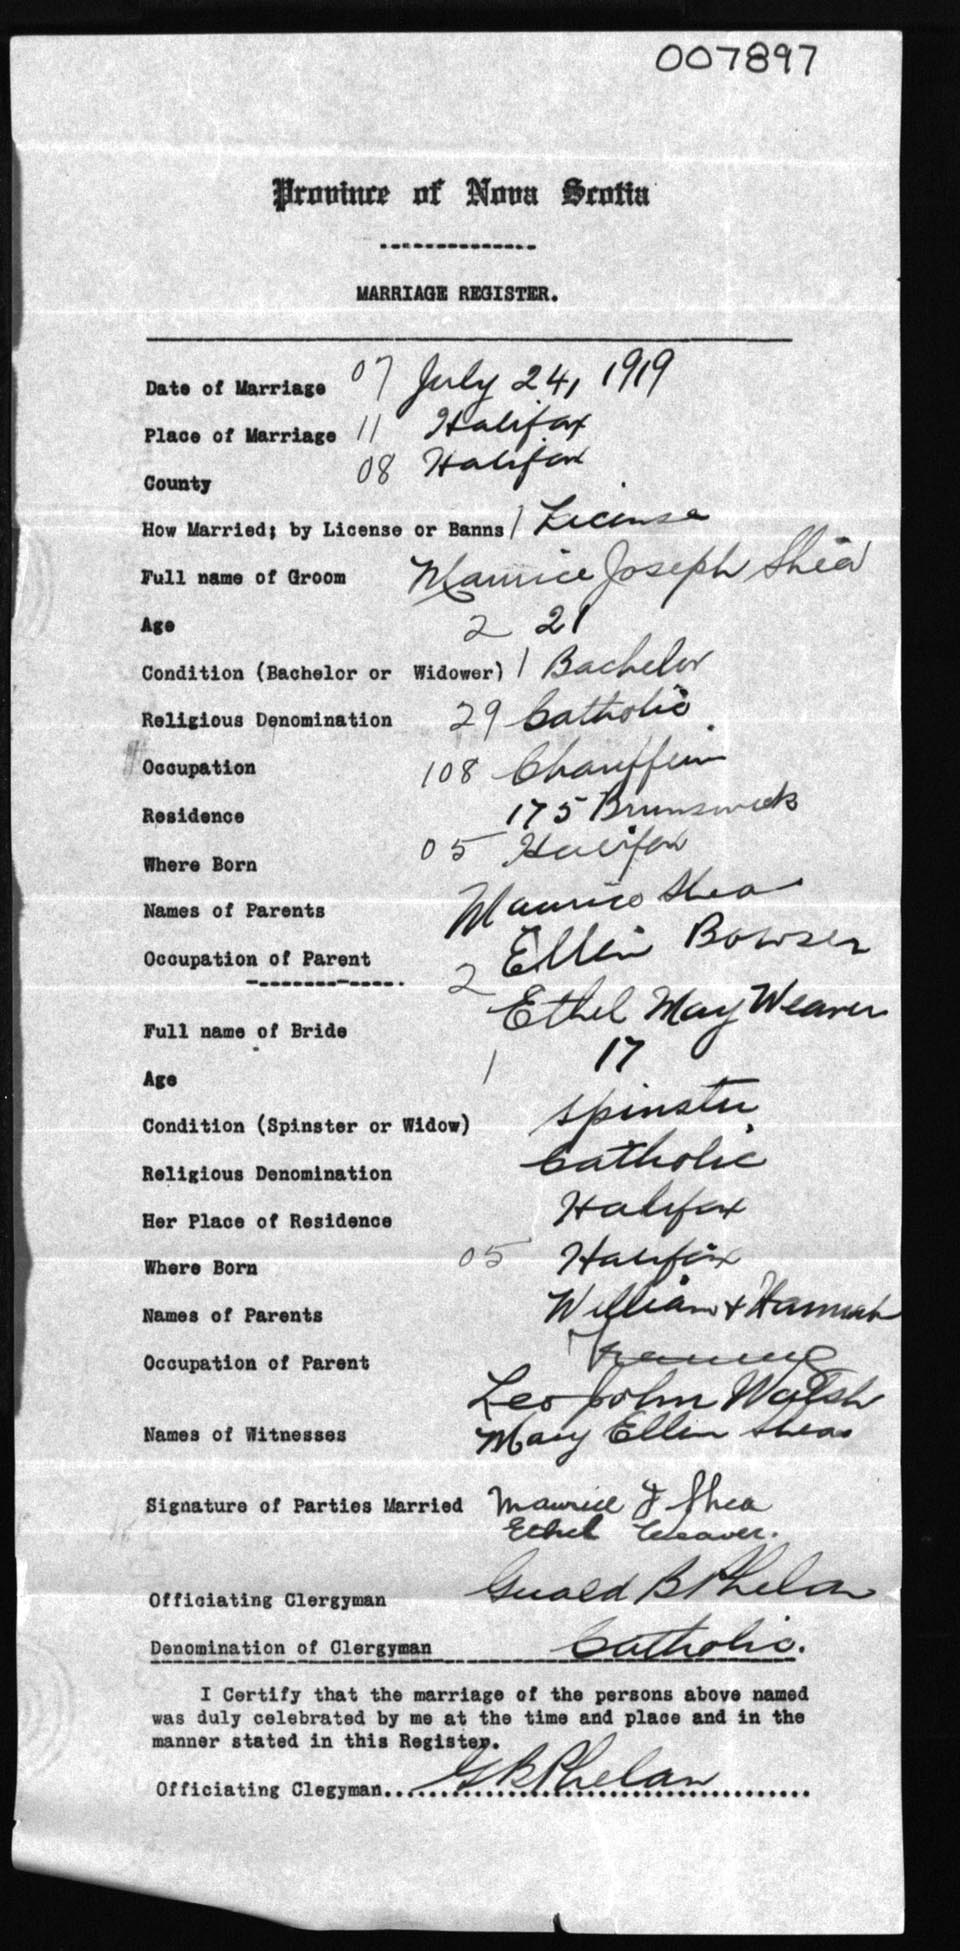 007897
Province of Nova Scotia
MARRIAGE REGISTER.
Date of Marriage 07 July 24, 1919
Place of Marriage 11 Halifax
County 08 Halifax
How Married; by License or Banns 1 License
Full name of Groom Maurice Joseph Shea
Age 2 21
Condition (Bachelor or Widower) 1 Bachelor
Religious Denomination 29 Catholic
Occupation 108 Chauffeur
Residence 175 Brunswick
Where Born 05 Halifax
Names of Parents Maurice Shea
Occupation of Parent Ellen Bowser
Full name of Bride 2 Ethel May Weaver
Age 1 17
Condition (Spinster or Widow) Spinster
Religious Denomination Catholic
Her Place of Residence Halifax
Where Born 05 Halifax
Names of Parents William & Hannah
Occupation of Parent
Leo John Walsh
Names of Witnesses Mary Ellen Shea
Signature of Parties Married Maurice J Shea
Ethel Weaver.
Officiating Clergyman Gerald B Phelan
Denomination of Clergyman Catholic.
I Certify that the marriage of the persons above named
was duly celebrated by me at the time and place and in the
manner stated in this Register.
Officiating Clegyman G B Phelan